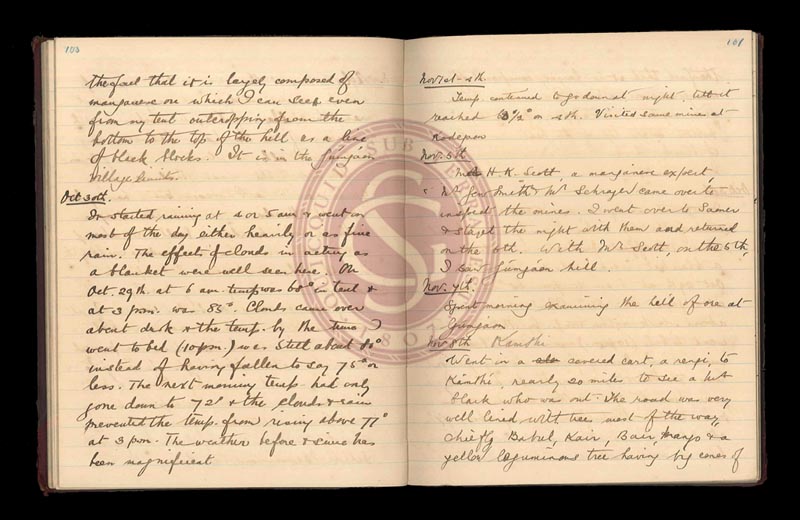 103
the fact that it is largely composed of
manganese ore which I can see even
from my tent outcropping from the
bottom to the top of the hill as a line
of black blocks. It is in the Jungáon
village limits.
Oct 30th.
It started raining at 4 or 5 am & went on
most of the day either heavily or as fine
rain. The effects of clouds in acting as
a blanket were well seen here. On
Oct. 29th at 6 am temp was 60° in tent &
at 3 pm. was 85°. Clouds came over
about dusk & the temp. by the time I
went to bed (10 pm.) was still about 80°
instead of having fallen to say 75° or
less. The next morning temp had only
gone down to 72° & the clouds & rain
prevented the temp. from rising above 77°
at 3 pm. The weather before & since has
been magnificent
Nov 1st - 4th.
Temp. continued to go down at night till it
reached 5½° on 4th. Visited some mines at
Kodegaon
Nov. 5th
H. K. Scott, a manganese expert,
Mr Smith & Mr Schrager came over to
inspect the mines. I went over to
& stayed the night with them and returned
on the 6th. With Mr Scott, on the 6th,
I saw Jungáon hill.
Nov. 7th.
Spent morning examining the hill of ore at
Jungaon
Nov 8th Kanthi
Went in a covered cart, a rengi, to
Kanthi, nearly 20 miles to see a
black who was out. The road was very
well lined with trees most of the way,
chiefly Babul, Kair, Bair, Mango & a
yellow leguminous tree having big cones of